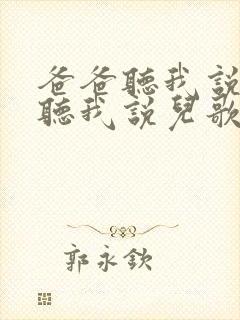 爸爸聽我說
聽我說兒歌
郭永欽